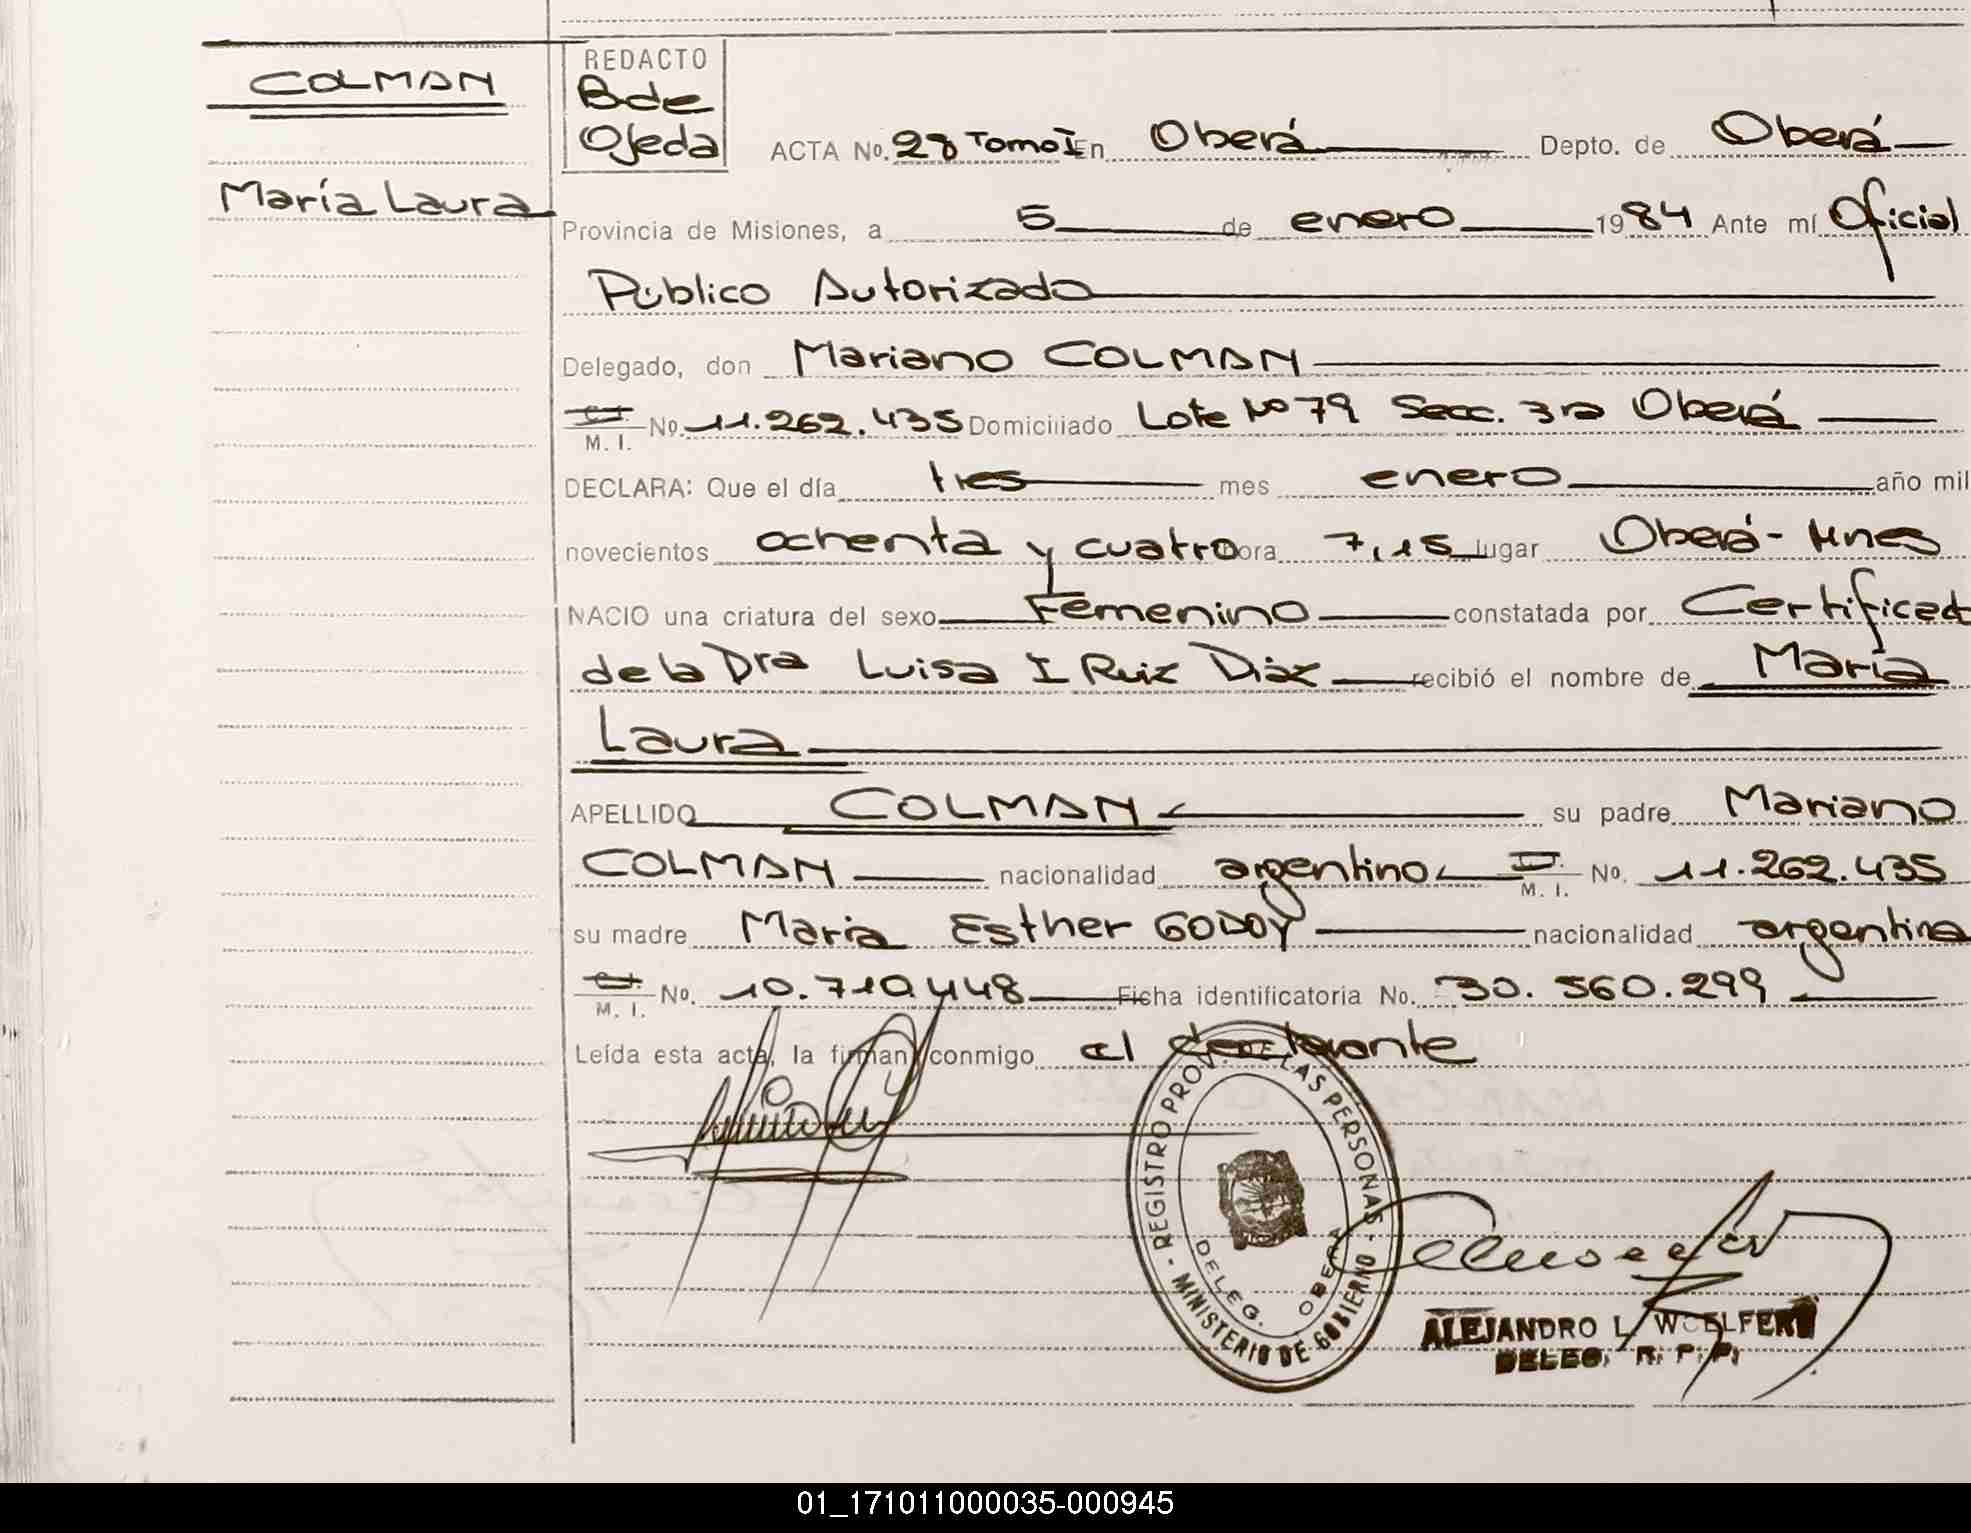 COLMAN
María Laura
REDACTO
Bde
Ojeda
ACTA No. 28 Tomo I En Oberá Depto. de Oberá
Provincia de Misiones, a 5 de enero 1984 Ante mí Oficial
Público Autorizado
Delegado, don Mariano COLMAN
M. I. No. 11.262.435 Domiciliado Lote Nº 79 Secc. 3ra Oberá
DECLARA: Que el día tres mes enero año mil
novecientos ochenta y cuatro hora 7,15 lugar Oberá - Mnes
NACIO una criatura del sexo Femenino constatada por Certificad
de la Dra Luisa I Ruiz Díaz recibió el nombre de María
Laura
APELLIDO COLMAN su padre Mariano
COLMAN nacionalidad argentino M. I. No. 11.262.435
su madre Maria Esther GODOY nacionalidad argentina
M. I. No. 10.710.448 Ficha identificatoria No. 30.560.299
Leída esta acta, la firman conmigo el declarante
- REGISTRO PROV. DE LAS PERSONAS - MINISTERIO DE GOBIERNO
DELEG. OBERA
ALEJANDRO L. WOELFERT
DELEG. R. P. P.
01_171011000035-000945